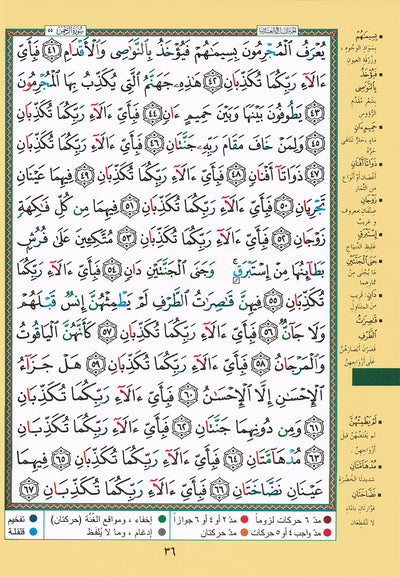 سورة الرحمن ٥٥
يُعْرَفُ الْمُجْرِمُونَ بِسِيمَاهُمْ فَيُؤْخَذُ بِالنَّوَاصِي وَالْأَقْدَامِ ٤١ فَبِأَيِّ
ءَالَاءِ رَبِّكُمَا تُكَذِّبَانِ ٤٢ هَٰذِهِ جَهَنَّمُ الَّتِي يُكَذِّبُ بِهَا الْمُجْرِمُونَ
٤٣ يَطُوفُونَ بَيْنَهَا وَبَيْنَ حَمِيمٍ ءَانٍ ٤٤ فَبِأَيِّ ءَالَاءِ رَبِّكُمَا تُكَذِّبَانِ
٤٥ وَلِمَنْ خَافَ مَقَامَ رَبِّهِ جَنَّتَانِ ٤٦ فَبِأَيِّ ءَالَاءِ رَبِّكُمَا تُكَذِّبَانِ
٤٧ ذَوَاتَا أَفْنَانٍ ٤٨ فَبِأَيِّ ءَالَاءِ رَبِّكُمَا تُكَذِّبَانِ ٤٩ فِيهِمَا عَيْنَانِ
تَجْرِيَانِ ٥٠ فَبِأَيِّ ءَالَاءِ رَبِّكُمَا تُكَذِّبَانِ ٥١ فِيهِمَا مِن كُلِّ فَاكِهَةٍ
زَوْجَانِ ٥٢ فَبِأَيِّ ءَالَاءِ رَبِّكُمَا تُكَذِّبَانِ ٥٣ مُتَّكِـِٔينَ عَلَىٰ فُرُشٍ
بَطَائِنُهَا مِنْ إِسْتَبْرَقٍ وَجَنَى الْجَنَّتَيْنِ دَانٍ ٥٤ فَبِأَيِّ ءَالَاءِ رَبِّكُمَا
تُكَذِّبَانِ ٥٥ فِيهِنَّ قَٰصِرَٰتُ الطَّرْفِ لَمْ يَطْمِثْهُنَّ إِنسٌ قَبْلَهُمْ
وَلَا جَانٌّ ٥٦ فَبِأَيِّ ءَالَاءِ رَبِّكُمَا تُكَذِّبَانِ ٥٧ كَأَنَّهُنَّ الْيَاقُوتُ
وَالْمَرْجَانُ ٥٨ فَبِأَيِّ ءَالَاءِ رَبِّكُمَا تُكَذِّبَانِ ٥٩ هَلْ جَزَاءُ
الْإِحْسَٰنِ إِلَّا الْإِحْسَٰنُ ٦٠ فَبِأَيِّ ءَالَاءِ رَبِّكُمَا تُكَذِّبَانِ
٦١ وَمِن دُونِهِمَا جَنَّتَانِ ٦٢ فَبِأَيِّ ءَالَاءِ رَبِّكُمَا تُكَذِّبَانِ
٦٣ مُدْهَامَّتَانِ ٦٤ فَبِأَيِّ ءَالَاءِ رَبِّكُمَا تُكَذِّبَانِ ٦٥ فِيهِمَا
عَيْنَانِ نَضَّاخَتَانِ ٦٦ فَبِأَيِّ ءَالَاءِ رَبِّكُمَا تُكَذِّبَانِ ٦٧
بِسِيمَاهُمْ
بسواد الوجوه،
وزرقة العيون
فَيُؤْخَذُ
بِالنَّوَاصِي
بشعر مقدّم
الرؤوس
حَمِيمٍ ءَانٍ
ماء حارّ تناهى
حرّه
ذَوَاتَا أَفْنَانٍ
أغصان أو أنواع
من الثمار
زَوْجَانِ
صنفان: معروف
وغريب
إِسْتَبْرَقٍ
غليظ الديباج
جَنَى الْجَنَّتَيْنِ
ما يُجنى من
ثمارهما
دَانٍ: قريب
من المتناول
قَٰصِرَٰتُ
الطَّرْفِ
قصرن أبصارهنّ
على أزواجهنّ
لَمْ يَطْمِثْهُنَّ
لم يفتضّهنّ قبل
أزواجهنّ
مُدْهَامَّتَانِ
شديدتا الخضرة
نَضَّاخَتَانِ
فوّارتان بالماء
لا تنقطعان
مدّ ٦ حركات لزوماً مدّ ٢ أو ٤ أو ٦ جوازاً إخفاء، ومواقع الغُنَّة (حركتان) تفخيم
مدّ واجب ٤ أو ٥ حركات مدّ حركتان إدغام، وما لا يُلفَظ قلقلة
٣٦